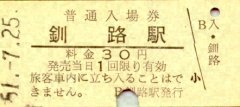 51.-7.25.
普通入場券
釧路駅
料金30円
発売当日1回限り有効
旅客車内に立ち入ることはで
きません。 B釧路駅発行
B入・釧路
小